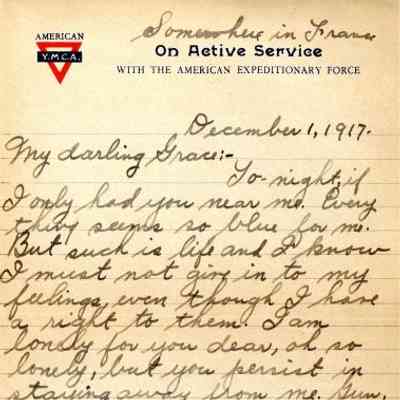 Somewhere in France
AMERICAN
Y.M.C.A.
On Active Service
WITH THE AMERICAN EXPEDITIONARY FORCE
December 1, 1917.
My darling Grace:-
To-night, if
I only had you near me. Every
thing seems so blue for me.
But such is life and I know
I must not give in to my
feelings, even though I have
a right to them. I am
lonely for you dear, oh so
lonely, but you persist in
staying away from me.